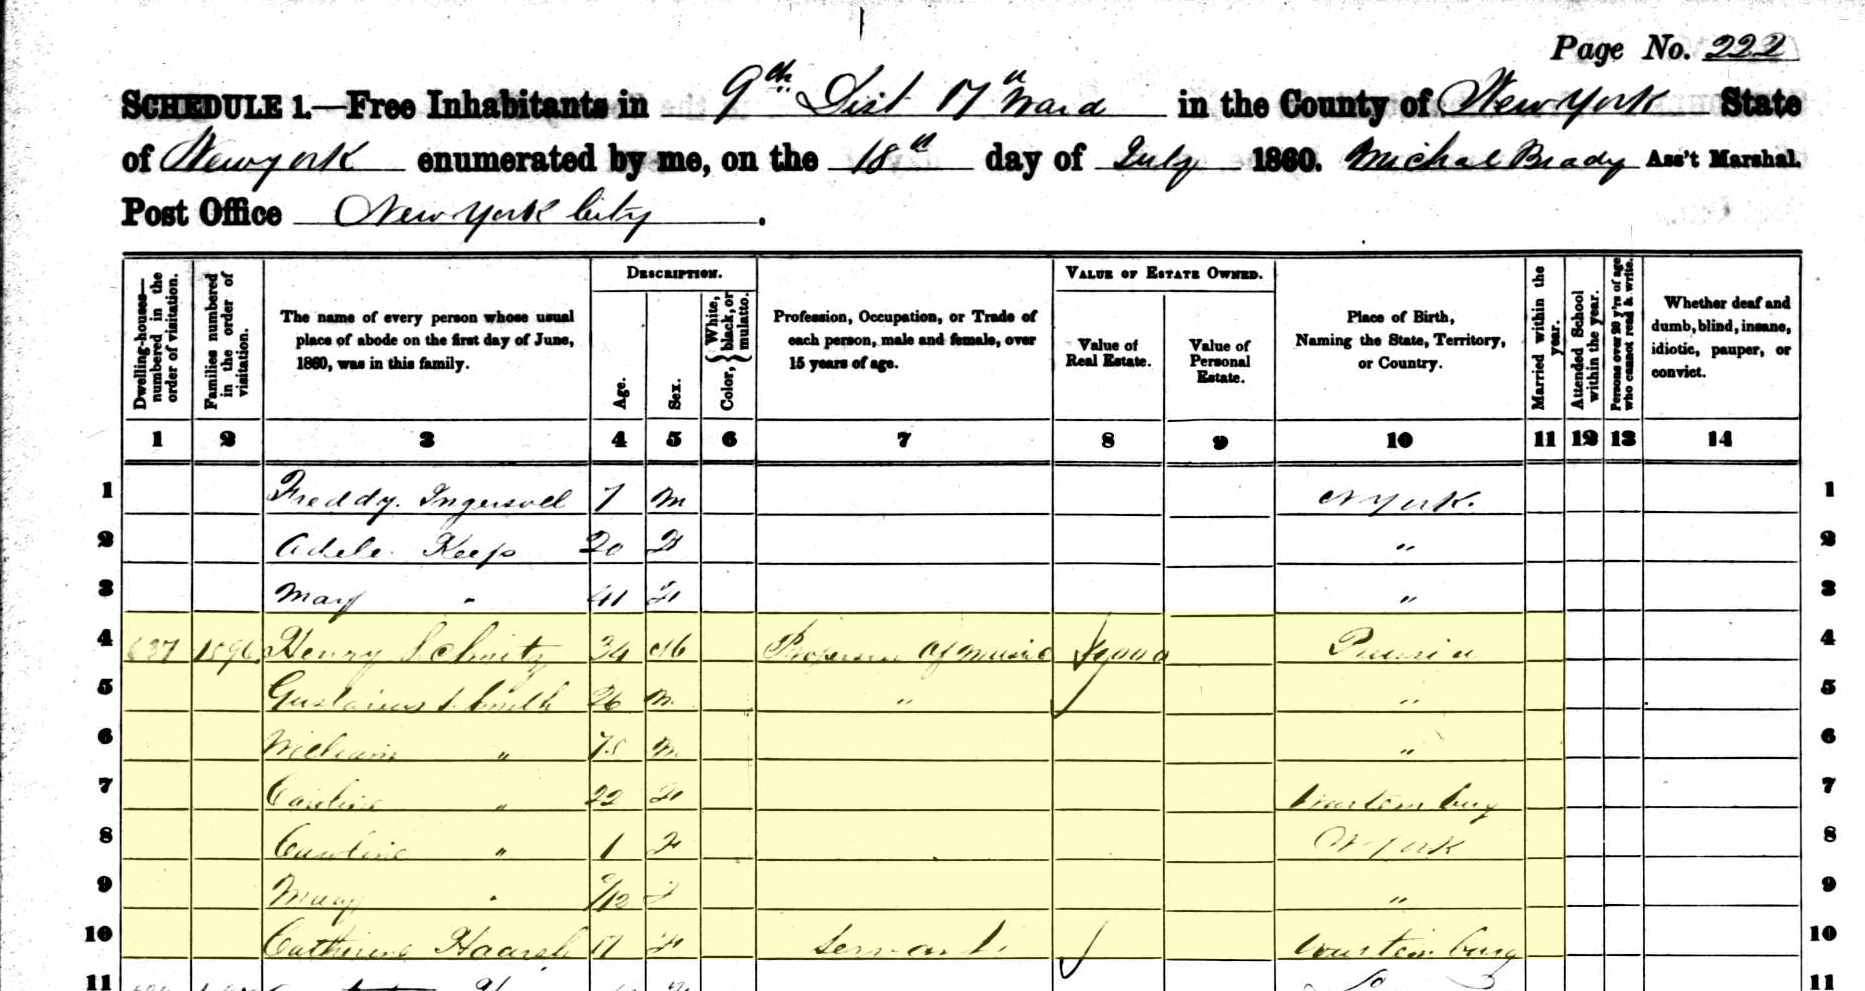 Page No. 222
SCHEDULE 1.—Free Inhabitants in 9th Dist 17th Ward in the County of New York State
of New york enumerated by me, on the 18th day of July 1860. Michal Brady Ass't Marshal.
Post Office New York City.
Dwelling-houses—numbered in the order of visitation.
Families numbered in the order of visitation.
The name of every person whose usual place of abode on the first day of June, 1860, was in this family.
DESCRIPTION.
Age.
Sex.
Color, {White, black, or mulatto.
Profession, Occupation, or Trade of each person, male and female, over 15 years of age.
VALUE OF ESTATE OWNED.
Value of Real Estate.
Value of Personal Estate.
Place of Birth, Naming the State, Territory, or Country.
Married within the year.
Attended School within the year.
Persons over 20 y'rs of age who cannot read & write.
Whether deaf and dumb, blind, insane, idiotic, pauper, or convict.
1 2 3 4 5 6 7 8 9 10 11 12 13 14
1 Freddy. Ingersoll 7 m N York. 1
2 Adele Keep 20 F " 2
3 Mary " 41 F " 3
4 637 Henry Schmitz 34 M Professor of music Prussia 4
5 Gustavus Smith 26 m " " 5
6 William " m " 6
7 Caroline " 22 F Wurtemburg 7
8 Caroline " 1 F N York 8
9 Mary " 9/12 F " 9
10 Catherine 17 F Servant Wurtemburg 10
11 11